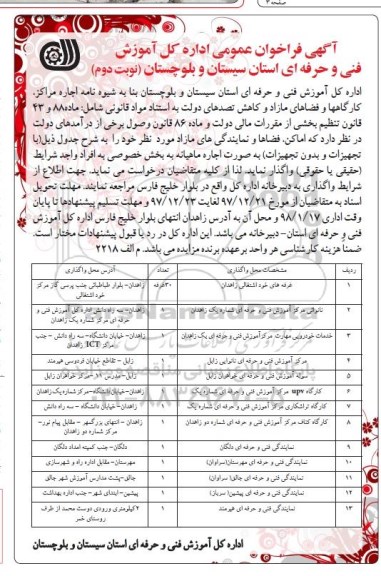 صفحه ۳
آگهی فراخوان عمومی اداره کل آموزش
فنی و حرفه ای استان سیستان و بلوچستان (نوبت دوم)
اداره کل آموزش فنی و حرفه ای استان سیستان و بلوچستان بنا به شیوه نامه اجاره مراکز،
کارگاهها و فضاهای مازاد و کاهش تصدهای دولت به استناد مواد قانونی شامل: ماده۸۸ و ۴۳
قانون تنظیم بخشی از مقررات مالی دولت و ماده ۸۶ قانون وصول برخی از درآمدهای دولت
در نظر دارد که اماکن، فضاها و نمایندگی های مازاد مورد نظر خود را به شرح جدول ذیل(با
تجهیزات و بدون تجهیزات) به صورت اجاره ماهیانه به بخش خصوصی به افراد واجد شرایط
(حقیقی یا حقوقی) واگذار نماید. لذا از کلیه متقاضیان درخواست می نماید جهت اطلاع از
شرایط واگذاری به دبیرخانه اداره کل واقع در بلوار خلیج فارس مراجعه نمایند. مهلت تحویل
اسناد به متقاضیان از مورخ ۹۷/۱۲/۲۱ لغایت ۹۷/۱۲/۲۳ و مهلت تسلیم پیشنهادها تا پایان
وقت اداری ۹۸/۱/۱۷ و محل آن به آدرس زاهدان انتهای بلوار خلیج فارس اداره کل آموزش
فنی و حرفه ای استان- دبیرخانه می باشد. این اداره کل در رد یا قبول پیشنهادات مختار است.
ضمناً هزینه کارشناسی هر واحد برعهده برنده مزایده می باشد. م الف ۲۲۱۸
ردیف مشخصات محل واگذاری تعداد آدرس محل واگذاری
۱ غرفه های خود اشتغالی زاهدان ۳۰غرفه زاهدان- بلوار طباطبائی جنب پرسی گاز مرکز خود اشتغالی
۲ نانوائی مرکز آموزش فنی و حرفه ای شماره یک زاهدان ۱ زاهدان- سه راه دانش اداره کل آموزش فنی و حرفه ای مرکز شماره یک زاهدان
۳ خدمات خودرویی مهارت مرکز آموزش فنی و حرفه ای یک زاهدان ۱ زاهدان- خیابان دانشگاه- سه راه دانش - جنب مرکز ICT زاهدان
۴ مرکز آموزش فنی و حرفه ای نانوایی زابل ۱ زابل - تقاطع خیابان فردوسی هیرمند
۵ سوله آموزش فنی و حرفه ای خواهران زابل ۱ زابل- مدرس ۱۶- مرکز خواهران زابل
۶ کارگاه upv مرکز آموزش فنی و حرفه ای شماره یک ۱ زاهدان-خیابان دانشگاه-مرکز شماره یک زاهدان
۷ کارگاه تراشکاری مرکز آموزش فنی و حرفه ای شماره یک ۱ زاهدان- خیابان دانشگاه - سه راه دانش
۸ کارگاه کناف مرکز آموزش فنی و حرفه ای شماره دو زاهدان ۱ زاهدان - انتهای بزرگمهر - مقابل پیام نور- مرکز شماره دو زاهدان
۹ نمایندگی فنی و حرفه ای دلگان ۱ دلگان- جنب کمیته امداد دلگان
۱۰ نمایندگی فنی و حرفه ای مهرستان(سراوان) ۱ مهرستان- مقابل اداره راه و شهرسازی
۱۱ نمایندگی فنی و حرفه ای جالق( سراوان) ۱ جالق-پشت مدارس آموزش شهر جالق
۱۲ نمایندگی فنی و حرفه ای پیشین( سرباز) ۱ پیشین- ابتدای شهر- جنب اداره بهداشت
۱۳ نمایندگی فنی و حرفه ای قهرمند ۱ ۲کیلومتری ورودی دوست محمد از طرف روستای خمر
اداره کل آموزش فنی و حرفه ای استان سیستان و بلوچستان